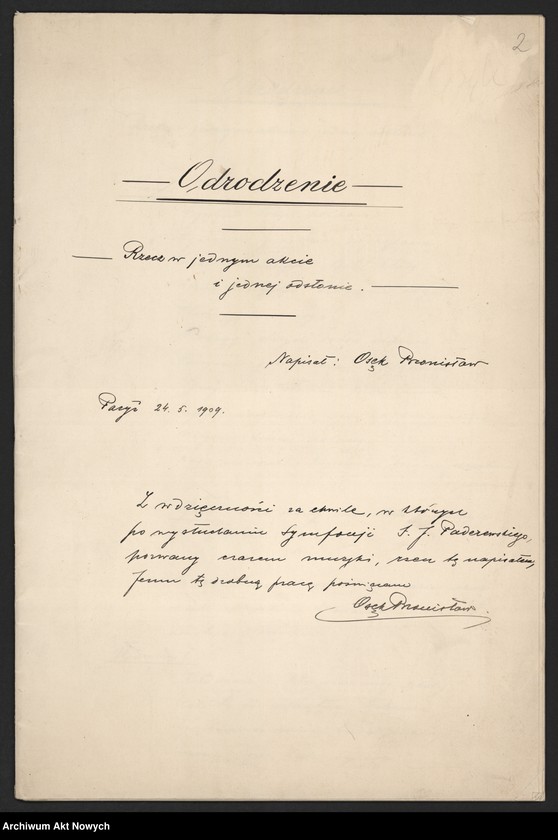 2
Odrodzenie
Rzecz w jednym akcie
i jednej odsłonie.
Napisał: Osęk Bronisław
Paryż 24. 5. 1909.
Z wdzięczności za chwile, w których
po wysłuchaniu Symfonji I. J. Paderewskiego,
porwany czarem muzyki, rzecz tę napisałem,
Jemu tę drobną pracę poświęcam
Osęk Bronisław.
Archiwum Akt Nowych